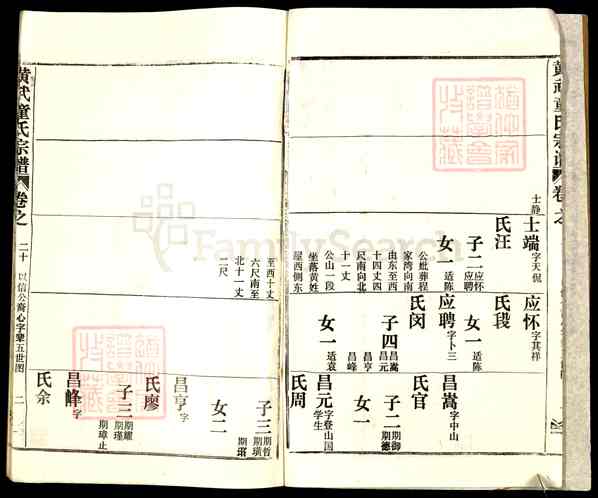 士静
士端 字天倪
氏汪
子二 应怀 应聘
女一 适陈
公妣葬程
家湾向南
由东至西
十四丈四
尺南向北
十一丈
公山一段
坐落黄姓
屋西侧东
至西十丈
六尺南至
北十一丈
二尺
应怀 字其祥
氏段
女一 适陈
应聘 字卜三
氏闵
子四 昌嵩 昌元 昌亨 昌峰
女一 适袁
昌嵩 字中山
氏官
子二 期御 期德
女一
昌元 字登山国学生
氏周
子三 期哲 期璜 期瑺
女二
昌亨 字
氏廖
子三 期耀 期瑾 期璋止
昌峰 字
氏余
黄武童氏宗谱
卷之
二十
以信公裔心字辈五世图
二
FamilySearch